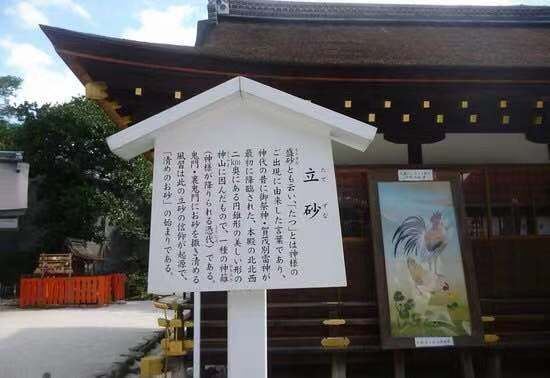 立砂
たて ずな
盛砂とも云い、「たつ」とは神様の
ご出現に由来した言葉であり、
神代の昔に御祭神・賀茂別雷神が
最初に降臨された、本殿の北北西
二km奥にある円錐形の美しい形の
神山に因んだもので、一種の神籬
(神様が降りられる憑代)である。
鬼門・裏鬼門にお砂を撒き清める
風習は此の立砂の信仰が起源で、
「清めのお砂」の始まりである。